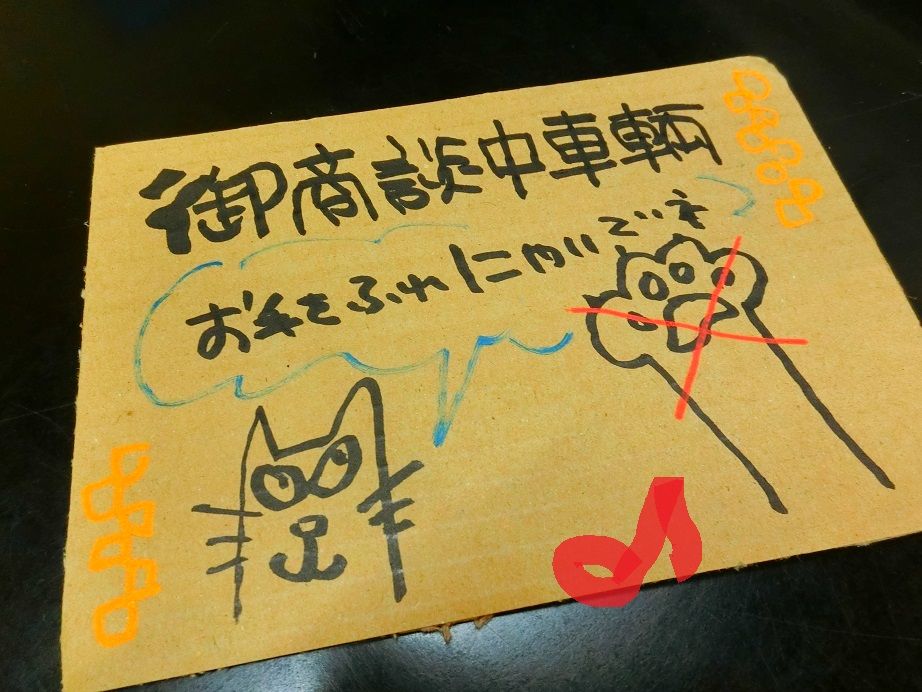 御商談中車輌
お手をふれにゃいでネ